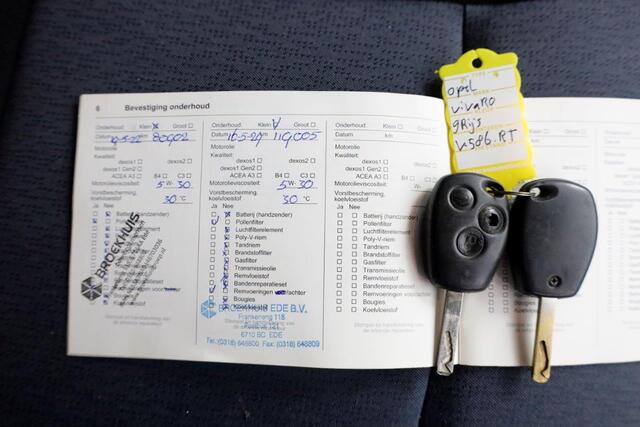 6 Bevestiging onderhoud
Onderhoud: Klein Groot
Datum 80902 km
Motorolie
Kwaliteit:
dexos1 dexos2
dexos1 Gen2
ACEA A3 B4 C3
Motorolieviscositeit 5W-30
Vorstbescherming,
koelvloeistof 30 °C
Ja Nee
Batterij (handzender)
Pollenfilter
BROCKHUIS
Onderhoud: Klein Groot
Datum 119005 km
Motorolie
Kwaliteit:
dexos1 dexos2
dexos1 Gen2
ACEA A3 B4 C3
Motorolieviscositeit 5W-30
Vorstbescherming,
koelvloeistof 30 °C
Ja Nee
Batterij (handzender)
Pollenfilter
Luchtfilterelement
Poly-V-riem
Tandriem
Brandstoffilter
Gasfilter
Transmissieolie
Remvloeistof
Bandenreparatieset
Remvoeringen achter
Bougies
Koelvloeistof
BROCKHUIS EDE B.V.
Frankeneng 115
6710 BC EDE
Tel.(0318) 648800 Fax: (0318) 648809
Onderhoud: Klein Groot
Datum km
Motorolie
Kwaliteit:
dexos1
dexos1 Gen2
ACEA A3 B4
Motorolieviscositeit
Vorstbescherming,
koelvloeistof
Ja Nee
Batterij (handzender)
Pollenfilter
Luchtfilterelement
Poly-V-riem
Tandriem
Brandstoffilter
Gasfilter
Transmissieolie
Remvloeistof
Bandenreparatieset
Remvoeringen voor/achter
Bougies
Koelvloeistof
Stempel en handtekening van
de erkende reparateur
Opel
vivaro
grijs
V586.RT